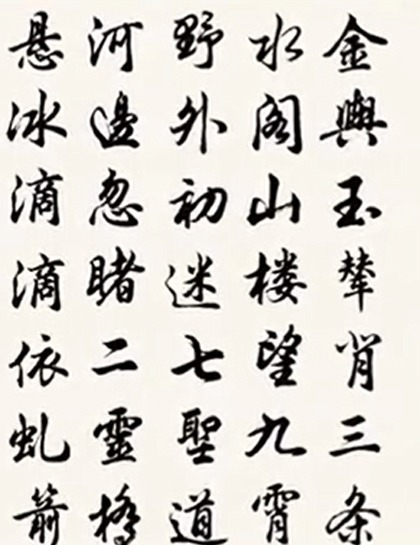 金輿玉輦肖三条
水阁山楼望九霄
野外初迷七聖道
河邊忽睹二靈橋
悬冰滴滴依虬箭